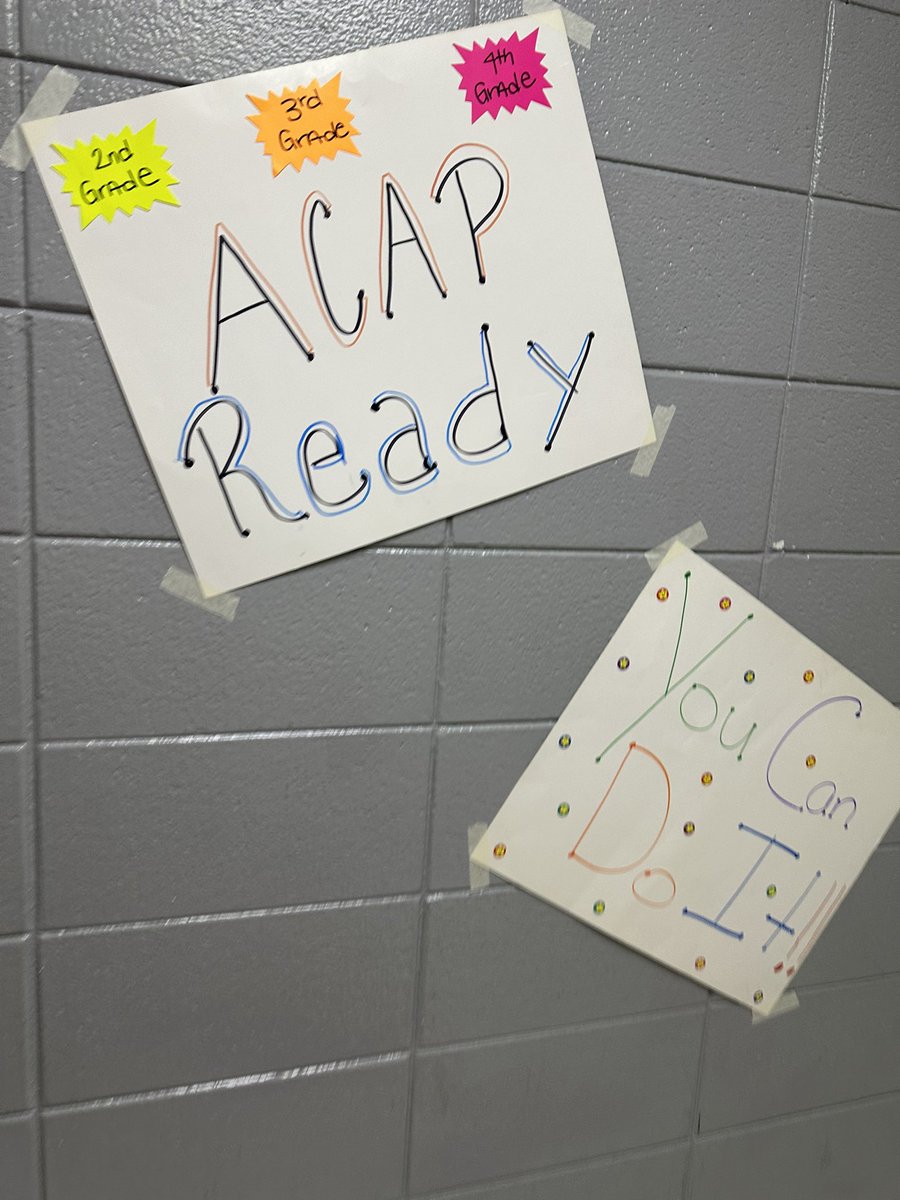 2nd
GrAde
3rd
GrAde
4th
GrAde
ACAP
Ready
You Can
Do It!!!